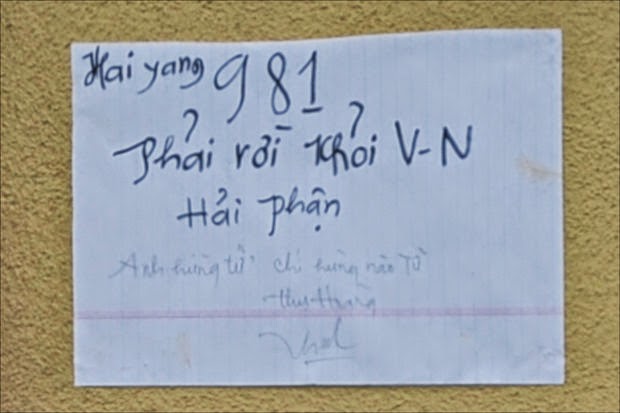 Hai yang 981
Phải rời khỏi V-N
Hải phận
Anh hùng tử, chí hùng nào Tử